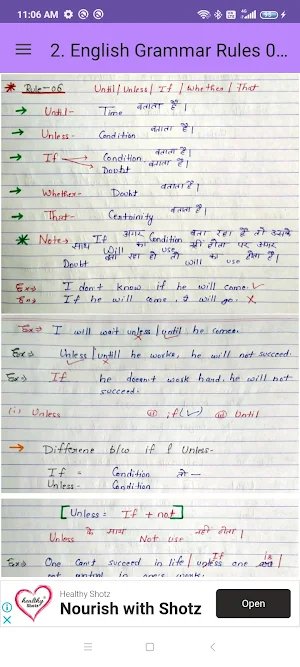 11:06 AM
99
2. English Grammar Rules 0...
* Rule-06 Until/Unless/If/Whether/That
→ Until- Time बताता है।
→ Unless- Condition बताता है।
→ If → Condition बताता है।
→ Doubt बताता है।
→ Whether- Doubt बताता है।
→ That- Certainity बताता है।
* Note→ If अगर Condition बता रहा है तो उसके
साथ Will का use नहीं होता पर अगर
Doubt बता रहा हो तो will का use होता है।
Ex⇒ I don't know if he will come. ✓
Ex⇒ If he will come, I will go. ✗
Ex⇒ I will wait unless/until he comes.
Ex⇒ Unless/untill he works, he will not succeed.
Ex⇒ If he doesn't work hard, he will not
succeed.
(i) Unless (ii) if (✓) (iii) Until
→ Differene b/w if & Unless-
If = Condition तो —
Unless- Condition
[Unless = If + not]
Unless के साथ Not use नहीं होता।
Ex⇒ One can't succeed in life / unless one is
If
not control in one's work.
Healthy Shotz
Nourish with Shotz
Open
healthy
Shotz